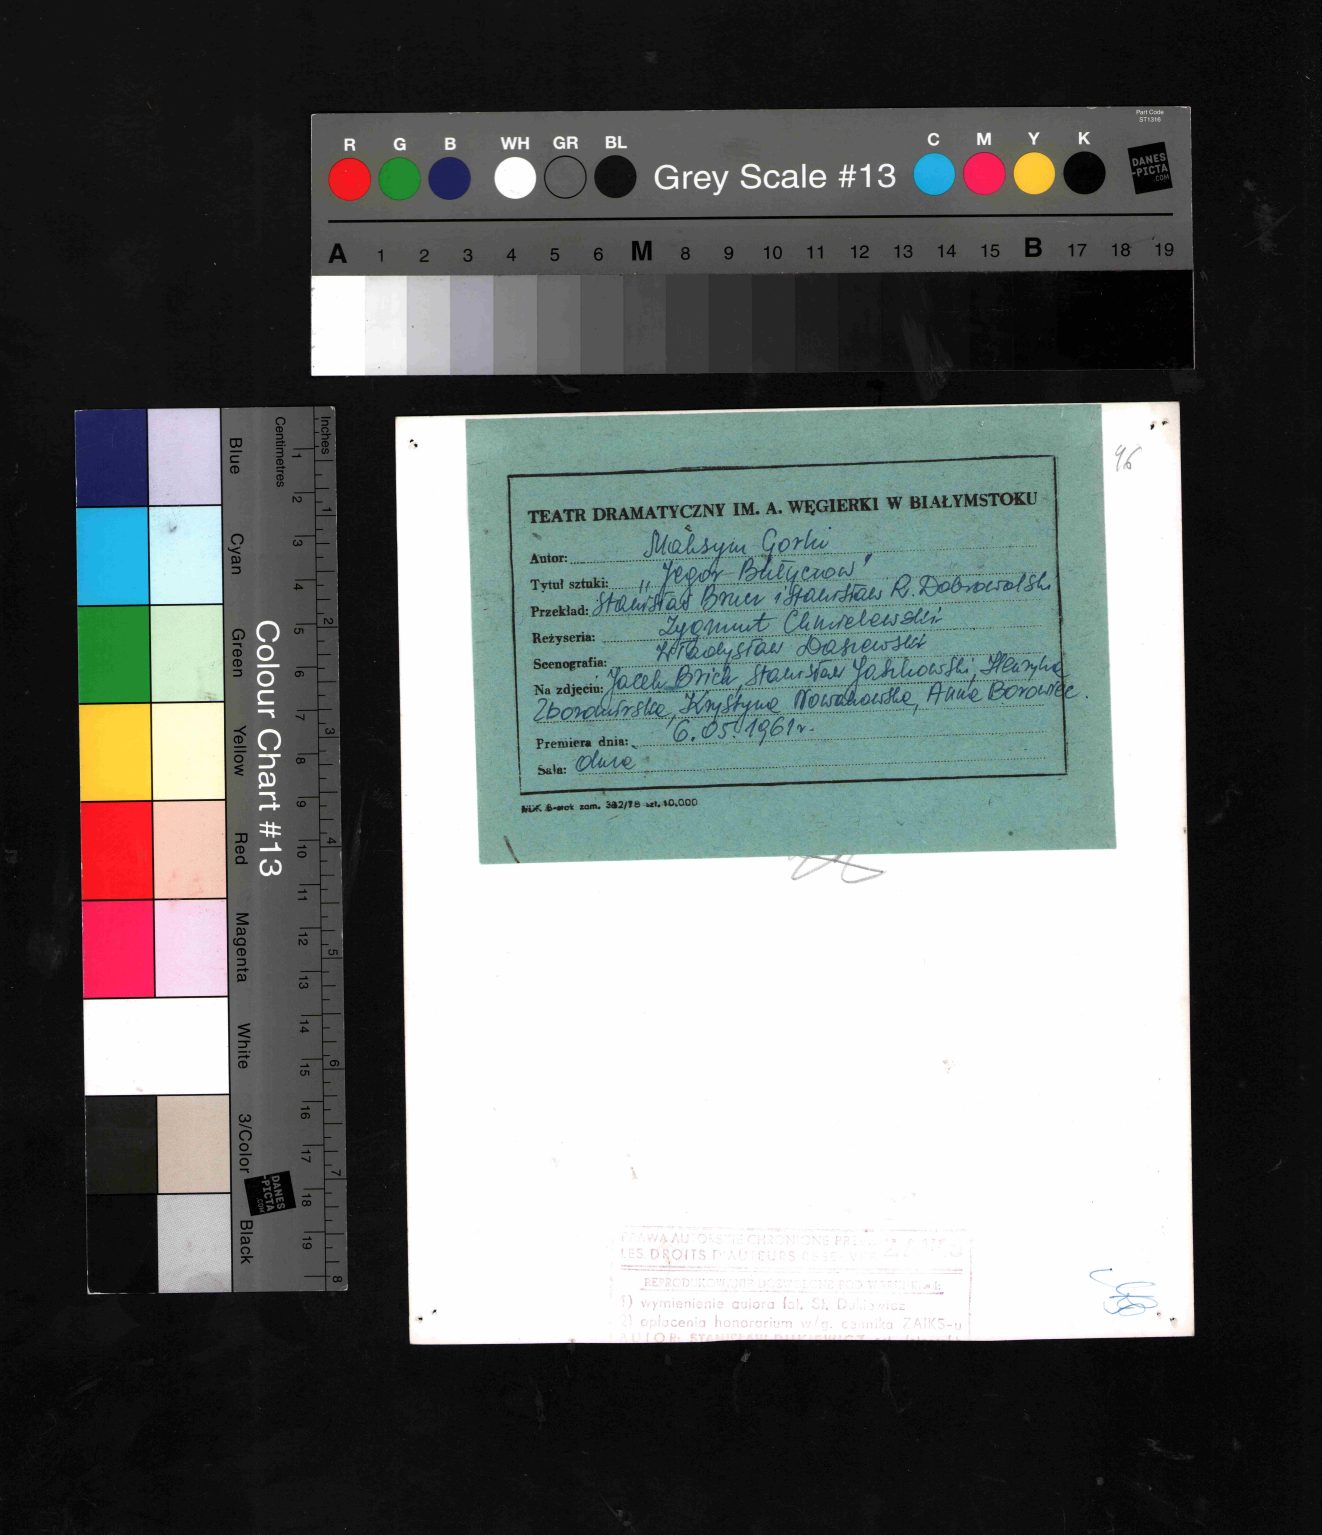 Part Code
ST1316
R G B WH GR BL
Grey Scale #13
C M Y K
DANES
-PICTA
.COM
A 1 2 3 4 5 6 M 8 9 10 11 12 13 14 15 B 17 18 19
Colour Chart #13
Blue
Cyan
Green
Yellow
Red
Magenta
White
3/Color
Black
Centimetres
1 2 3 4 5 6 7 8 9 10 11 12 13 14 15 16 17 18 19
Inches
1 2 3 4 5 6 7 8
DANES
-PICTA
.COM
96
TEATR DRAMATYCZNY IM. A. WĘGIERKI W BIAŁYMSTOKU
Autor: Maksym Gorki
Tytuł sztuki: „Jegor Bułyczow"
Przekład: Stanisław Brucz i Stanisław R. Dobrowolski
Reżyseria: Zygmunt Chmielewski
Scenografia: Władysław Daszewski
Na zdjęciu: Jacek Brick, Stanisław Jaszkowski, Henryka
Zboromirska, Krystyna Nowakowska, Anna Borowiec.
Premiera dnia: 6.05.1961r.
Sala: duża
zam. 382/78 szt. 10.000
PRAWA AUTORSKIE CHRONIONE
LES DROITS D'AUTEURS
1) wymienienie autora fot. St.
2) opłacenia honorarium w/g. cennika ZAIKS-u
AUTOR: STANISŁAW